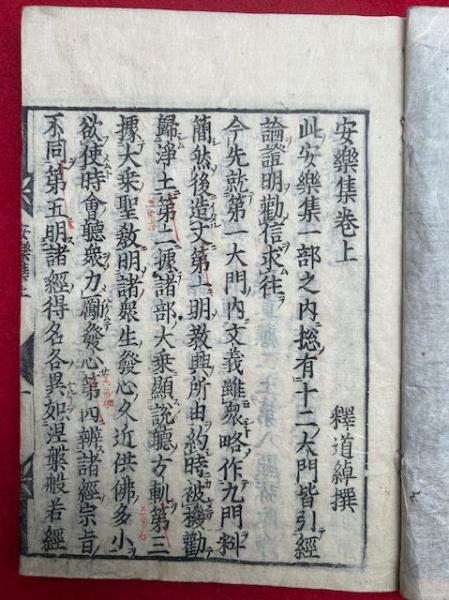 安樂集卷上
釋道綽撰
此安樂集一部之内揔有十二大門皆引經
論證明勸信求徃
今先就第一大門内文義雖衆略作九門料
簡然後造文第一明教興所由約時被機勸
歸淨土第二據諸部大乗顯説聽方軌第三
據大乗聖教明諸衆生發心久近供佛多小
欲使時會聽衆力勵發心第四辨諸經宗旨
不同第五明諸經得名各異如涅槃般若經
安樂集上